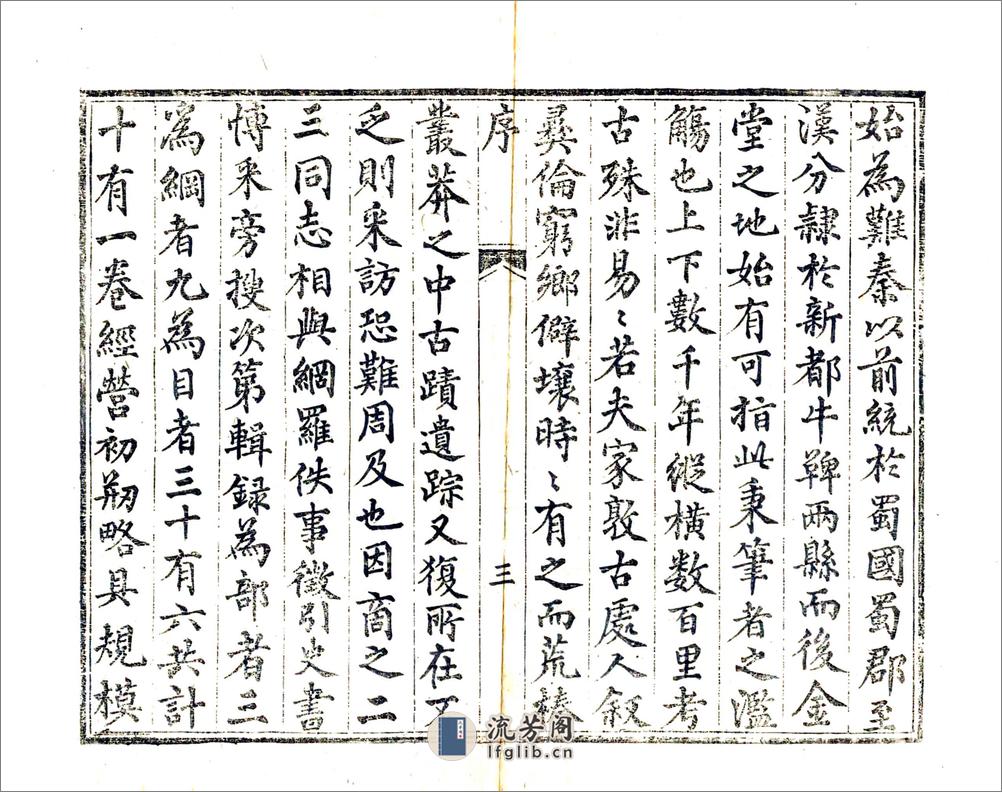 始為難秦以前統於蜀國蜀郡至
漢分隷於新都牛鞞兩縣而後金
堂之地始有可指此秉筆者之濫
觴也上下數千年縱横数百里考
古殊非易〻若夫家敦古處人叙
彝倫窮鄉僻壤時〻有之而荒榛
序
三
叢莽之中古蹟遺踪又復所在不
乏則采訪恐難周及也因商之二
三同志相與綱羅佚事徵引史書
博采旁搜次第輯録為部者三
為綱者九為目者三十有六共計
十有一卷經營初刱略具規模
流芳阁
lfglib.cn